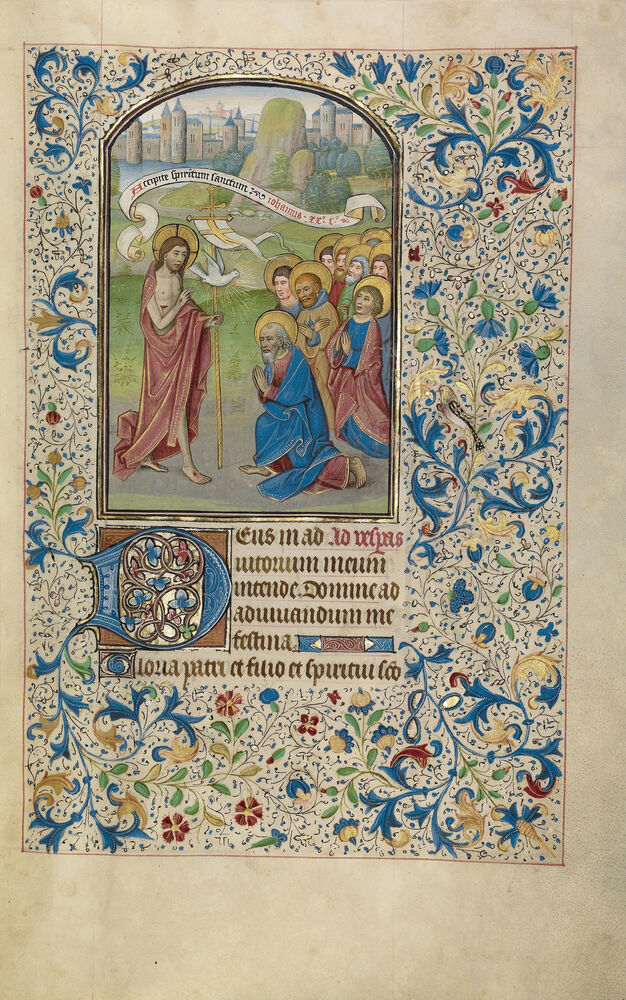 Accipite spiritum sanctum
iohannis · xx° · c°
Deus in ad Ad vesp̄as
iutorium meum
intende. Domine ad
adiuuandum me
festina.
Gloria patri et filio et spiritui sc̄o